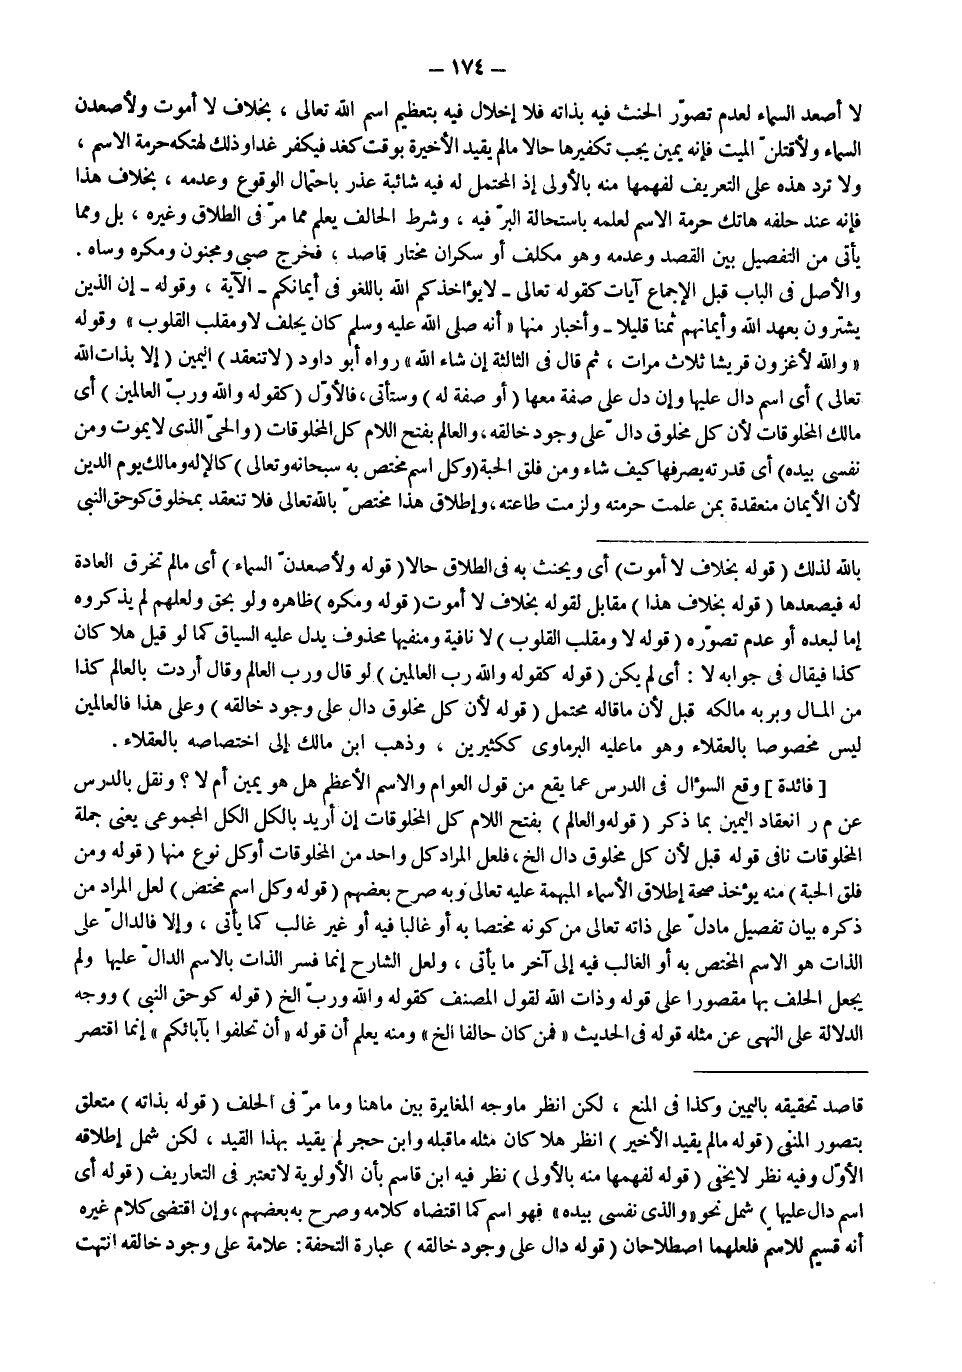 – ١٧٤ –
لا أصعد السماء لعدم تصوّر الحنث فيه بذاته فلا إخلال فيه بتعظيم اسم الله تعالى ، بخلاف لا أموت ولأصعدن
السماء ولأقتلنّ الميت فإنه يمين يجب تكفيرها حالا مالم يقيد الأخيرة بوقت كغد فيكفر غدا وذلك لهتكه حرمة الاسم ،
ولا ترد هذه على التعريف لفهمها منه بالأولى إذ المحتمل له فيه شائبة عذر باحتمال الوقوع وعدمه ، بخلاف هذا
فإنه عند حلفه هاتك حرمة الاسم لعلمه باستحالة البرّ فيه ، وشرط الحالف يعلم مما مرّ فى الطلاق وغيره ، بل ومما
يأتى من التفصيل بين القصد وعدمه وهو مكلف أو سكران مختار قاصد ؛ فخرج صبى ومجنون ومكره وساه .
والأصل فى الباب قبل الإجماع آيات كقوله تعالى ـ لايؤاخذكم الله باللغو فى أيمانكم ـ الآية ، وقوله ـ إن الذين
يشترون بعهد الله وأيمانهم ثمنا قليلا ـ وأخبار منها « أنه صلى الله عليه وسلم كان يحلف لا ومقلب القلوب » وقوله
« والله لأغزون قريشا ثلاث مرات ، ثم قال فى الثالثة إن شاء الله » رواه أبو داود ( لاتنعقد ) اليمين ( إلا بذات الله
تعالى ) أى اسم دال عليها وإن دل على صفة معها ( أو صفة له ) وستأتى ، فالأوّل ( كقوله والله وربّ العالمين ) أى
مالك المخلوقات لأن كل مخلوق دالّ على وجود خالقه ، والعالم بفتح اللام كل المخلوقات ( والحىّ الذى لايموت ومن
نفسى بيده ) أى قدرته يصرفها كيف شاء ومن فلق الحبة ( وكل اسم مختص به سبحانه وتعالى ) كالإله ومالك يوم الدين
لأن الأيمان منعقدة بمن علمت حرمته ولزمت طاعته ، وإطلاق هذا مختصّ بالله تعالى فلا تنعقد بمخلوق كوحق النبى
بالله لذلك ( قوله بخلاف لا أموت ) أى ويحنث به فى الطلاق حالا ( قوله ولأصعدنّ السماء ) أى مالم تخرق العادة
له فيصعدها ( قوله بخلاف هذا ) مقابل لقوله بخلاف لا أموت ( قوله ومكره ) ظاهره ولو بحق ولعلهم لم يذكروه
إما لبعده أو عدم تصوّره ( قوله لا ومقلب القلوب ) لا نافية ومنفيها محذوف يدل عليه السياق كما لو قيل هلا كان
كذا فيقال فى جوابه لا : أى لم يكن ( قوله كقوله والله رب العالمين ) لو قال ورب العالم وقال أردت بالعالم كذا
من المال وبربه مالكه قبل لأن ماقاله محتمل ( قوله لأن كل مخلوق دال على وجود خالقه ) وعلى هذا فالعالمين
ليس مخصوصا بالعقلاء وهو ماعليه البرماوى ككثيرين ، وذهب ابن مالك إلى اختصاصه بالعقلاء .
[ فائدة ] وقع السؤال فى الدرس عما يقع من قول العوام والاسم الأعظم هل هو يمين أم لا ؟ ونقل بالدرس
عن م ر انعقاد اليمين بما ذكر ( قوله والعالم ) بفتح اللام كل المخلوقات إن أريد بالكل الكل المجموعى يعنى جملة
المخلوقات نافى قوله قبل لأن كل مخلوق دال الخ ، فلعل المراد كل واحد من المخلوقات أو كل نوع منها ( قوله ومن
فلق الحبة ) منه يؤخذ صحة إطلاق الأسماء المبهمة عليه تعالى وبه صرح بعضهم ( قوله وكل اسم مختص ) لعل المراد من
ذكره بيان تفصيل مادلّ على ذاته تعالى من كونه مختصا به أو غالبا فيه أو غير غالب كما يأتى ، وإلا فالدالّ على
الذات هو الاسم المختص به أو الغالب فيه إلى آخر ما يأتى ، ولعل الشارح إنما فسر الذات بالاسم الدالّ عليها ولم
يجعل الحلف بها مقصورا على قوله وذات الله لقول المصنف كقوله والله وربّ الخ ( قوله كوحق النبى ) ووجه
الدلالة على النهى عن مثله قوله فى الحديث « فمن كان حالفا الخ » ومنه يعلم أن قوله « أن تحلفوا بآبائكم » إنما اقتصر
قاصد تحقيقه باليمين وكذا فى المنع ، لكن انظر ماوجه المغايرة بين ماهنا وما مرّ فى الحلف ( قوله بذاته ) متعلق
بتصور المنفى ( قوله مالم يقيد الأخير ) انظر هلا كان مثله ماقبله وابن حجر لم يقيد بهذا القيد ، لكن شمل إطلاقه
الأوّل وفيه نظر لايخفى ( قوله لفهمها منه بالأولى ) نظر فيه ابن قاسم بأن الأولوية لاتعتبر فى التعاريف ( قوله أى
اسم دال عليها ) شمل نحو « والذى نفسى بيده » فهو اسم كما اقتضاه كلامه وصرح به بعضهم ، وإن اقتضى كلام غيره
أنه قسيم للاسم فلعلهما اصطلاحان ( قوله دال على وجود خالقه ) عبارة التحفة : علامة على وجود خالقه انتهت